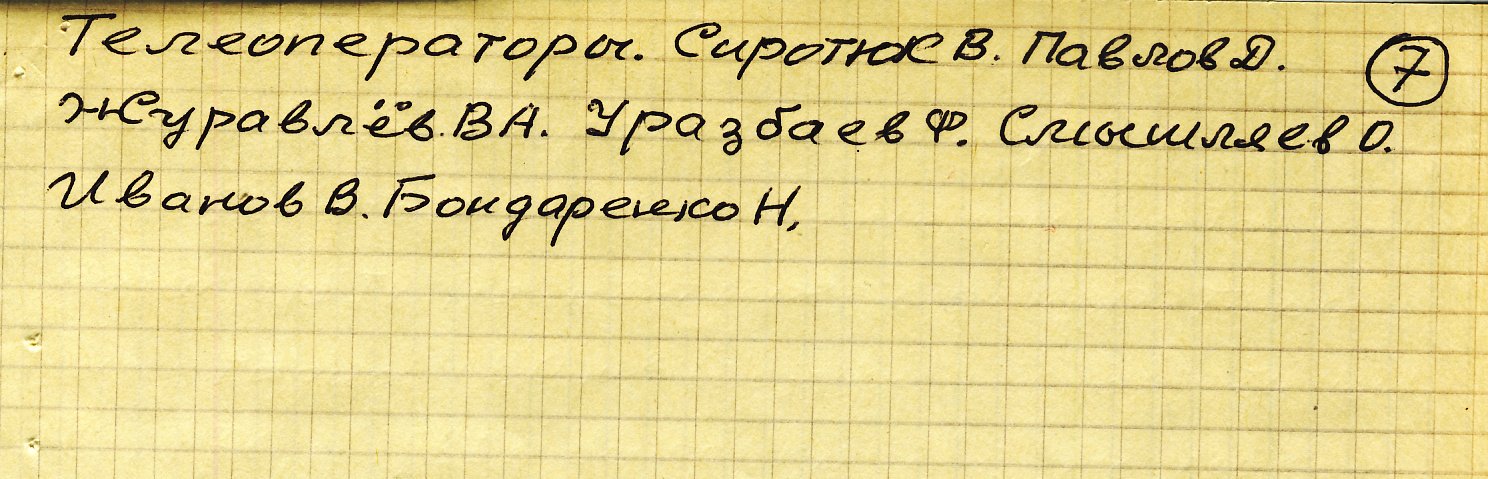 Телеоператоры. Сиротюк В. Павлов Д. 7
Журавлёв. В А. Уразбаев Ф. Смышляев О.
Иванов В. Бондаренко Н,